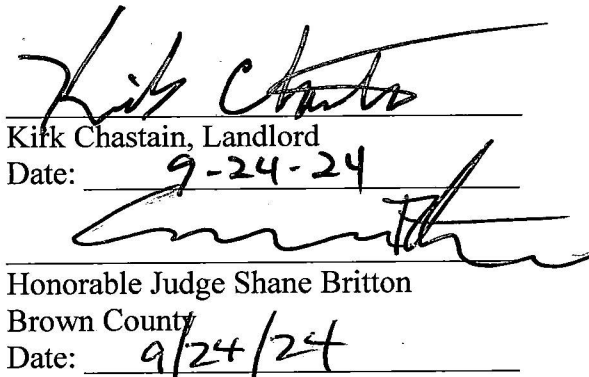 Kirk Chastain, Landlord
Date: 9-24-24
Honorable Judge Shane Britton
Brown County
Date: 9/24/24